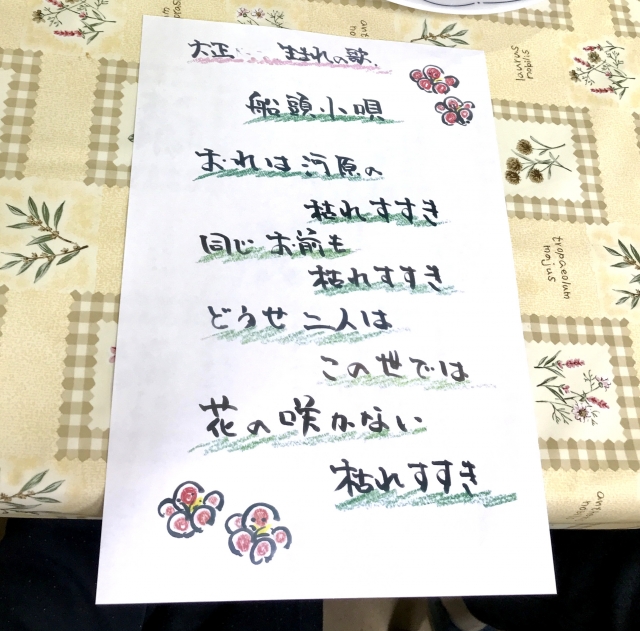 大正・・・生まれの歌
船頭小唄
おれは河原の
枯れすすき
同じお前も
枯れすすき
どうせ二人は
この世では
花の咲かない
枯れすすき
laurus nobilis
tropaeolum majus